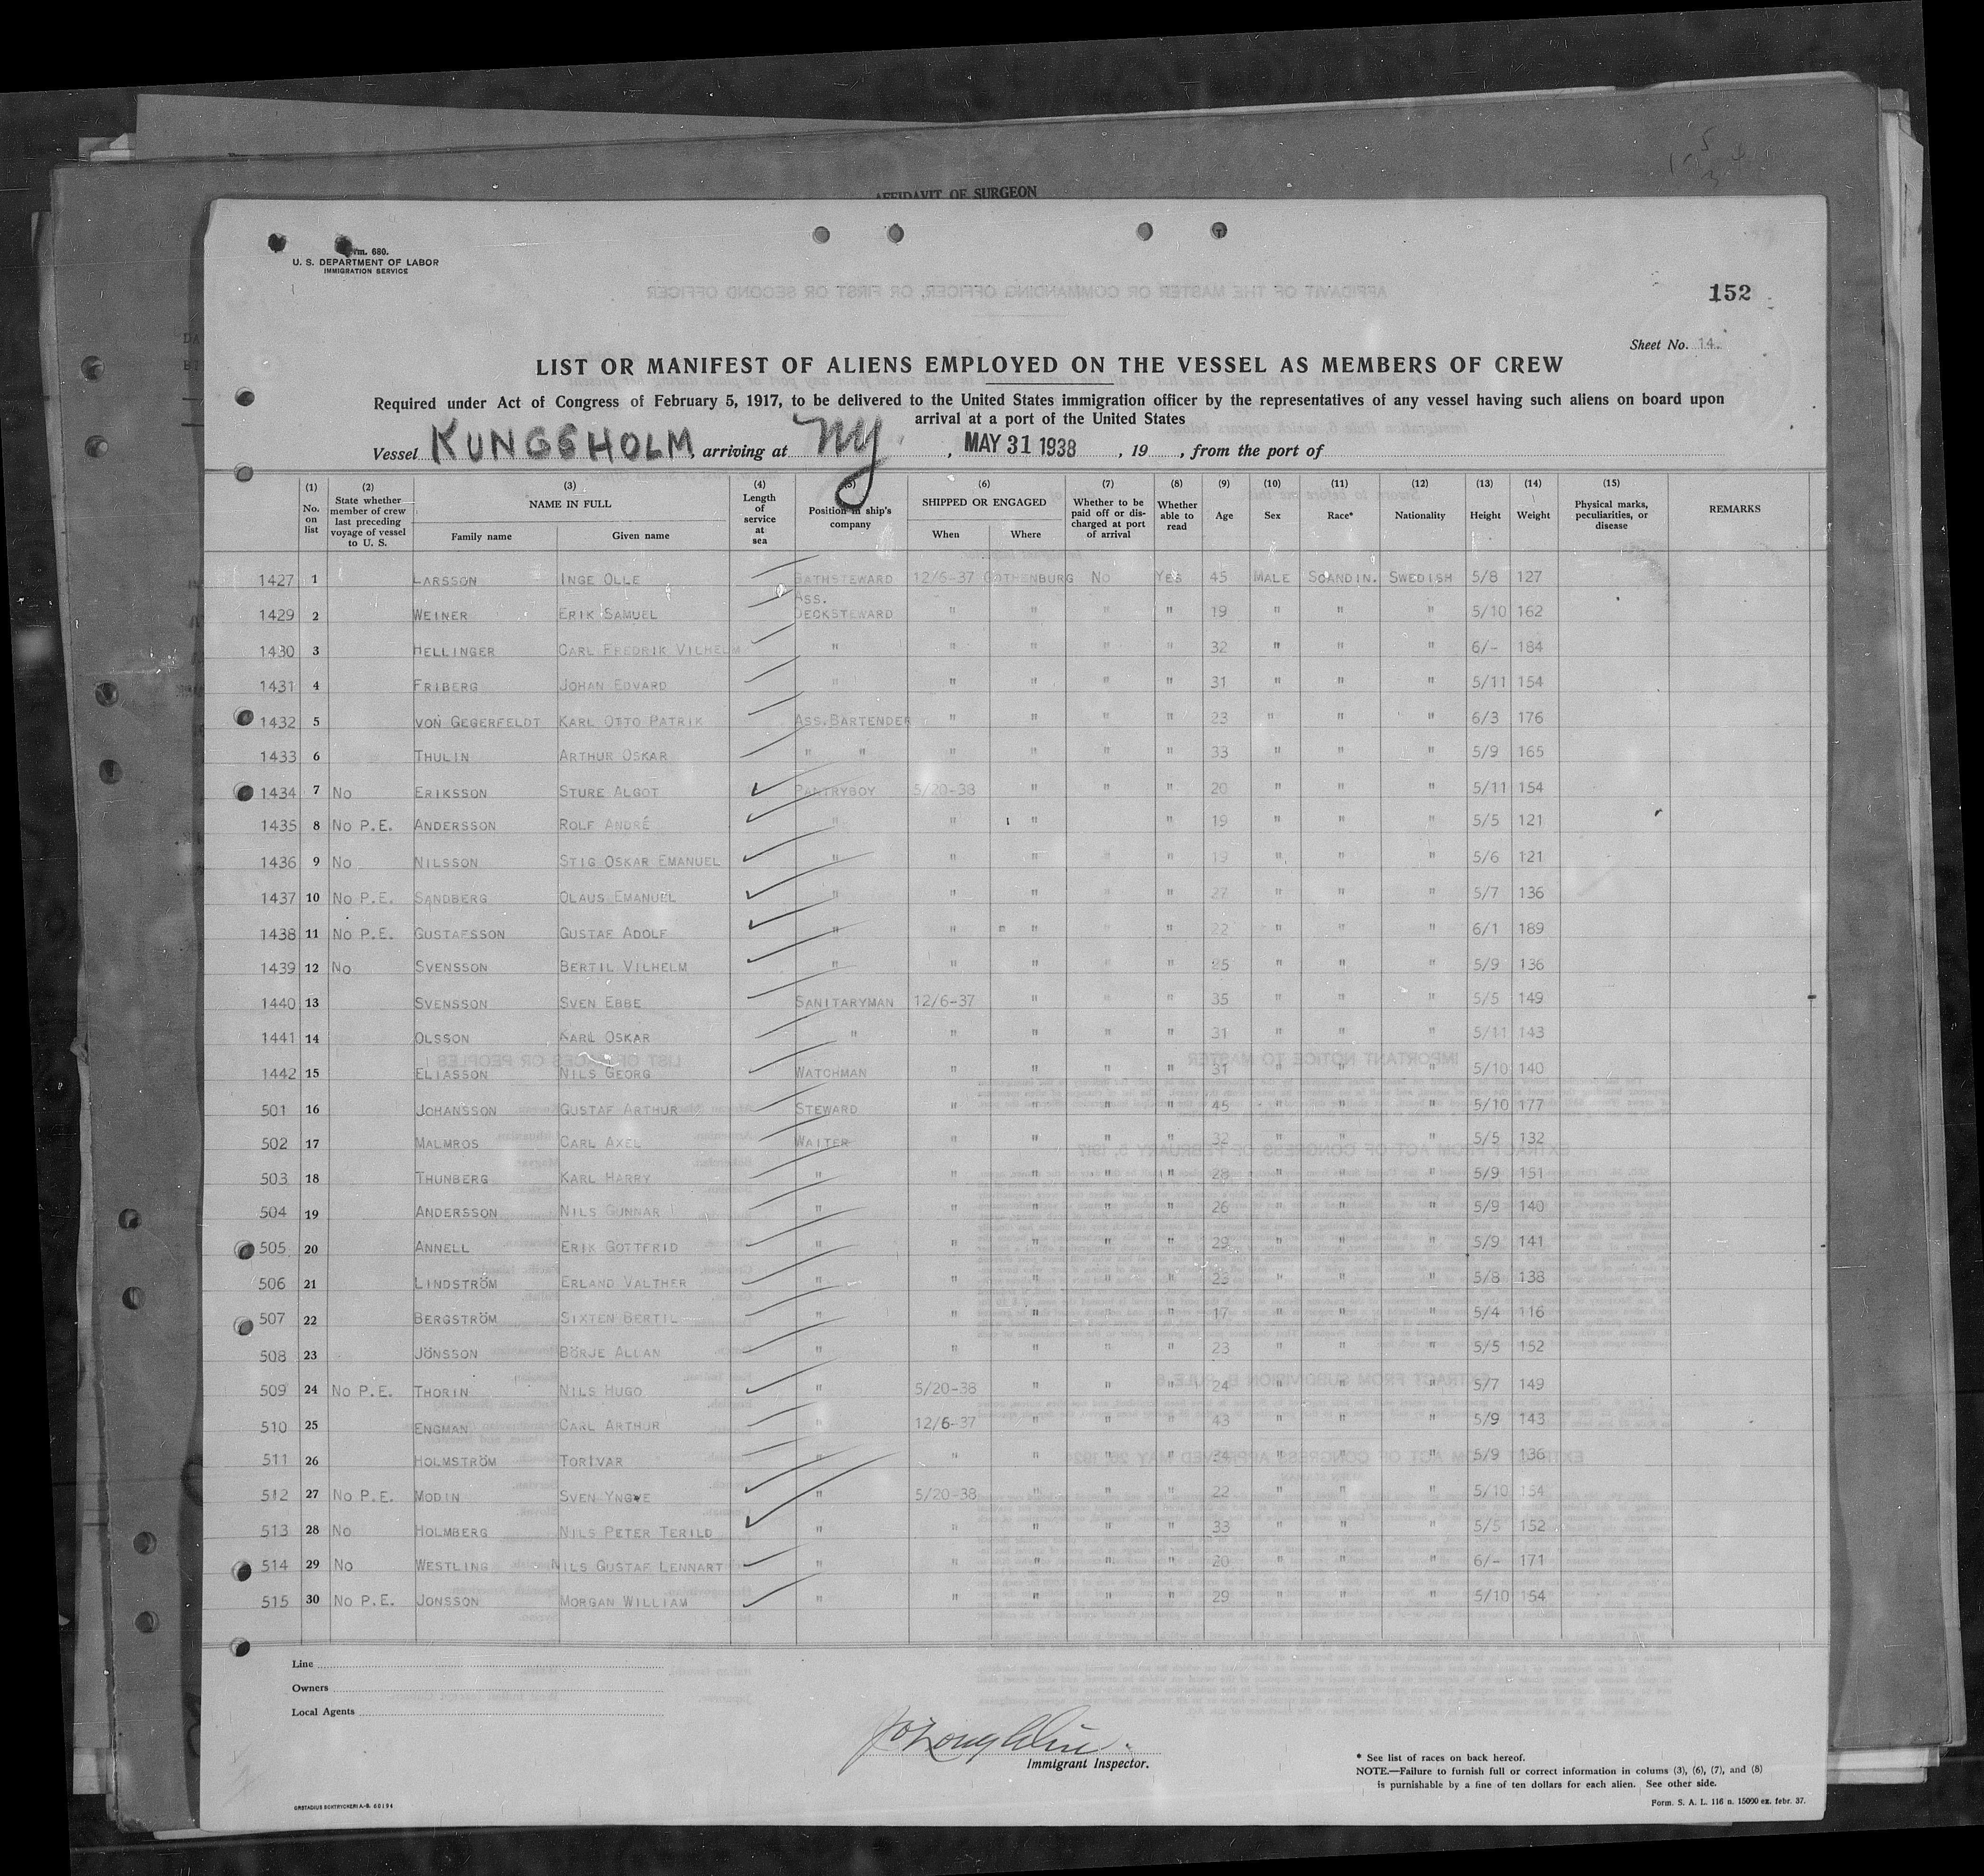 AFFIDAVIT OF SURGEON
rm. 680.
U. S. DEPARTMENT OF LABOR
IMMIGRATION SERVICE
152
Sheet No. 14.
LIST OR MANIFEST OF ALIENS EMPLOYED ON THE VESSEL AS MEMBERS OF CREW
Required under Act of Congress of February 5, 1917, to be delivered to the United States immigration officer by the representatives of any vessel having such aliens on board upon
arrival at a port of the United States
Vessel KUNGSHOLM, arriving at NY, MAY 31 1938, 19 , from the port of
(1) No. on list (2) State whether member of crew last preceding voyage of vessel to U. S. (3) NAME IN FULL Family name Given name (4) Length of service at sea (5) Position in ship's company (6) SHIPPED OR ENGAGED When Where (7) Whether to be paid off or discharged at port of arrival (8) Whether able to read (9) Age (10) Sex (11) Race* (12) Nationality (13) Height (14) Weight (15) Physical marks, peculiarities, or disease REMARKS
1427 1 LARSSON INGE OLLE BATHSTEWARD 12/6-37 GOTHENBURG NO YES 45 MALE SCANDIN. SWEDISH 5/8 127
1429 2 WEINER ERIK SAMUEL ASS. DECKSTEWARD " " " " 19 " " " 5/10 162
1430 3 HELLINGER CARL FREDRIK VILHELM " " " " " 32 " " " 6/- 184
1431 4 FRIBERG JOHAN EDVARD " " " " " 31 " " " 5/11 154
1432 5 VON GEGERFELDT KARL OTTO PATRIK ASS.BARTENDER " " " " 23 " " " 6/3 176
1433 6 THULIN ARTHUR OSKAR " " " " " " 33 " " " 5/9 165
1434 7 NO ERIKSSON STURE ALGOT PANTRYBOY 5/20-38 " " " 20 " " " 5/11 154
1435 8 NO P.E. ANDERSSON ROLF ANDRÉ " " " " 19 " " " 5/5 121
1436 9 NO NILSSON STIG OSKAR EMANUEL " " " " " 19 " " " 5/6 121
1437 10 NO P.E. SANDBERG OLAUS EMANUEL " " " " " 27 " " " 5/7 136
1438 11 NO P.E. GUSTAFSSON GUSTAF ADOLF " " " " " " 22 " " " 6/1 189
1439 12 NO SVENSSON BERTIL VILHELM " " " " " 25 " " " 5/9 136
1440 13 SVENSSON SVEN EBBE SANITARYMAN 12/6-37 " " " 35 " " " 5/5 149
1441 14 OLSSON KARL OSKAR " " " " " 31 " " " 5/11 143
1442 15 ELIASSON NILS GEORG WATCHMAN " " " " 31 " " " 5/10 140
501 16 JOHANSSON GUSTAF ARTHUR STEWARD " " " " 45 " " " 5/10 177
502 17 MALMROS CARL AXEL WAITER " " " " 32 " " " 5/5 132
503 18 THUNBERG KARL HARRY " " " " " 28 " " " 5/9 151
504 19 ANDERSSON NILS GUNNAR " " " " " 26 " " " 5/9 140
505 20 ANNELL ERIK GOTTFRID " " " " " 29 " " " 5/9 141
506 21 LINDSTRÖM ERLAND VALTHER " " " " " 23 " " " 5/8 138
507 22 BERGSTRÖM SIXTEN BERTIL " " " " " 17 " " " 5/4 116
508 23 JÖNSSON BÖRJE ALLAN " " " " " 23 " " " 5/5 152
509 24 NO P.E. THORIN NILS HUGO " 5/20-38 " " " 24 " " " 5/7 149
510 25 ENGMAN CARL ARTHUR " 12/6-37 " " " 43 " " " 5/9 143
511 26 HOLMSTRÖM TORIVAR " " " " " 24 " " " 5/9 136
512 27 NO P.E. MODIN SVEN YNGVE " 5/20-38 " " " 22 " " " 5/10 154
513 28 NO HOLMBERG NILS PETER TERILD " " " " " 33 " " " 5/5 152
514 29 NO WESTLING NILS GUSTAF LENNART " " " " " 20 " " " 6/- 171
515 30 NO P.E. JONSSON MORGAN WILLIAM " " " " " 29 " " " 5/10 154
Line
Owners
Local Agents
Immigrant Inspector.
* See list of races on back hereof.
NOTE.—Failure to furnish full or correct information in colums (3), (6), (7), and (8)
is purnishable by a fine of ten dollars for each alien. See other side.
Form. S. A. L. 116 n. 15000 ex. febr. 37.